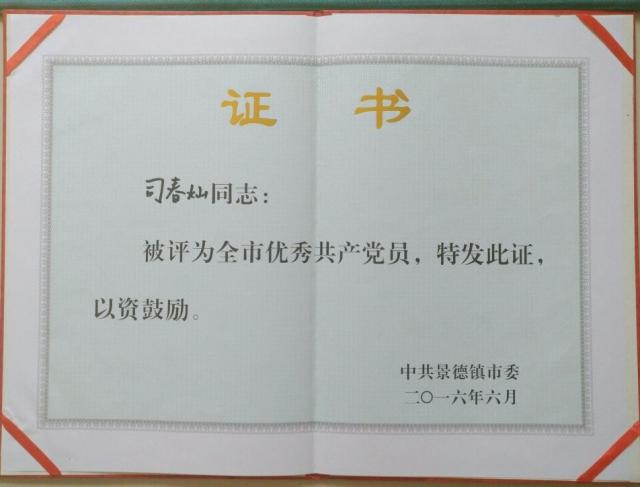 证书
司春灿同志：
被评为全市优秀共产党员，特发此证，
以资鼓励。
中共景德镇市委
二〇一六年六月